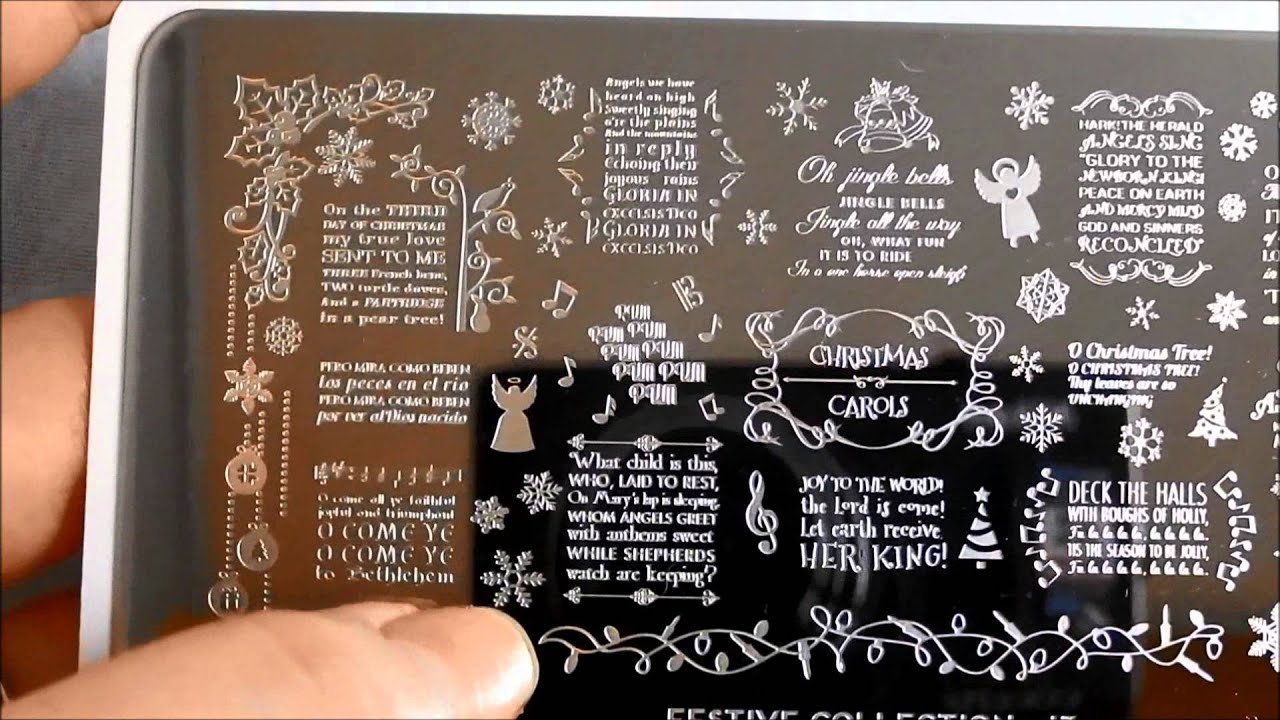 Angels we have
heard on high
Sweetly singing
o're the plains
And the mountains
in reply
Echoing their
joyous rains
GLORIA IN
EXCELSIS DEO
GLORIA IN
EXCELSIS DEO
Oh jingle bells
JINGLE BELLS
Jingle all the way
OH, WHAT FUN
IT IS TO RIDE
In a one horse open sleigh
HARK! THE HERALD
ANGELS SING
"GLORY TO THE
NEWBORN KING!
PEACE ON EARTH
AND MERCY MILD
GOD AND SINNERS
RECONCILED"
On the THIRD
DAY OF CHRISTMAS
my true love
SENT TO ME
THREE French hens,
TWO turtle doves,
And a PARTRIDGE
in a pear tree!
PUM
PUM PUM
PUM PUM
PUM PUM PUM
PUM
CHRISTMAS
CAROLS
O Christmas Tree!
O CHRISTMAS TREE!
Thy leaves are so
UNCHANGING
PERO MIRA COMO BEBEN
Los peces en el rio
PERO MIRA COMO BEBEN
por ver al Dios nacido
What child is this,
WHO, LAID TO REST,
On Mary's lap is sleeping,
WHOM ANGELS GREET
with anthems sweet
WHILE SHEPHERDS
watch are keeping?
JOY TO THE WORLD!
the Lord is come!
Let earth receive
HER KING!
DECK THE HALLS
WITH BOUGHS OF HOLLY,
Fa la la la la, la la la la.
TIS THE SEASON TO BE JOLLY,
Fa la la la la, la la la la.
O come all ye faithful
joyful and triumphant
O COME YE
O COME YE
to Bethlehem
FESTIVE COLLECTION